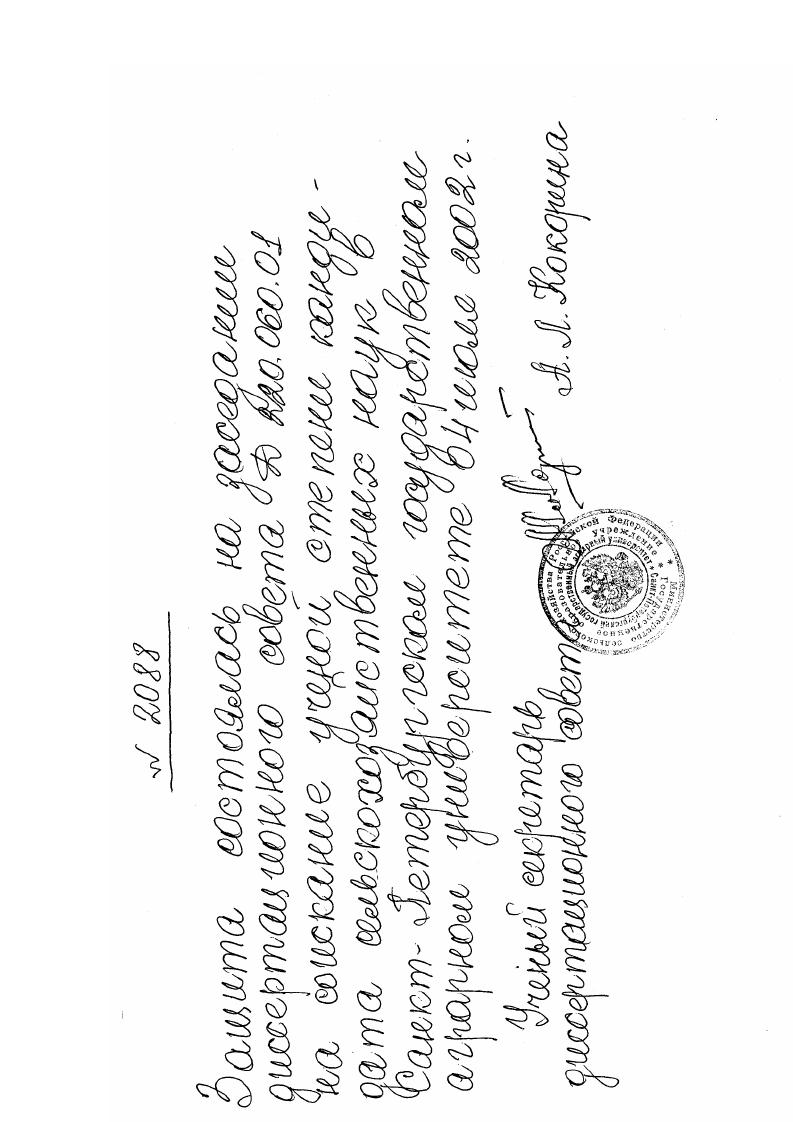 № 2088
Защита состоялась на заседании
диссертационного совета Д 220.060.01
на соискание учёной степени канди-
дата сельскохозяйственных наук в
Санкт-Петербургском государственном
аграрном университете 04 июля 2002 г.
Учёный секретарь
диссертационного совета А. Л. Кокорина
Министерство сельского хозяйства Российской Федерации
Государственное образовательное учреждение
Санкт-Петербургский государственный аграрный университет